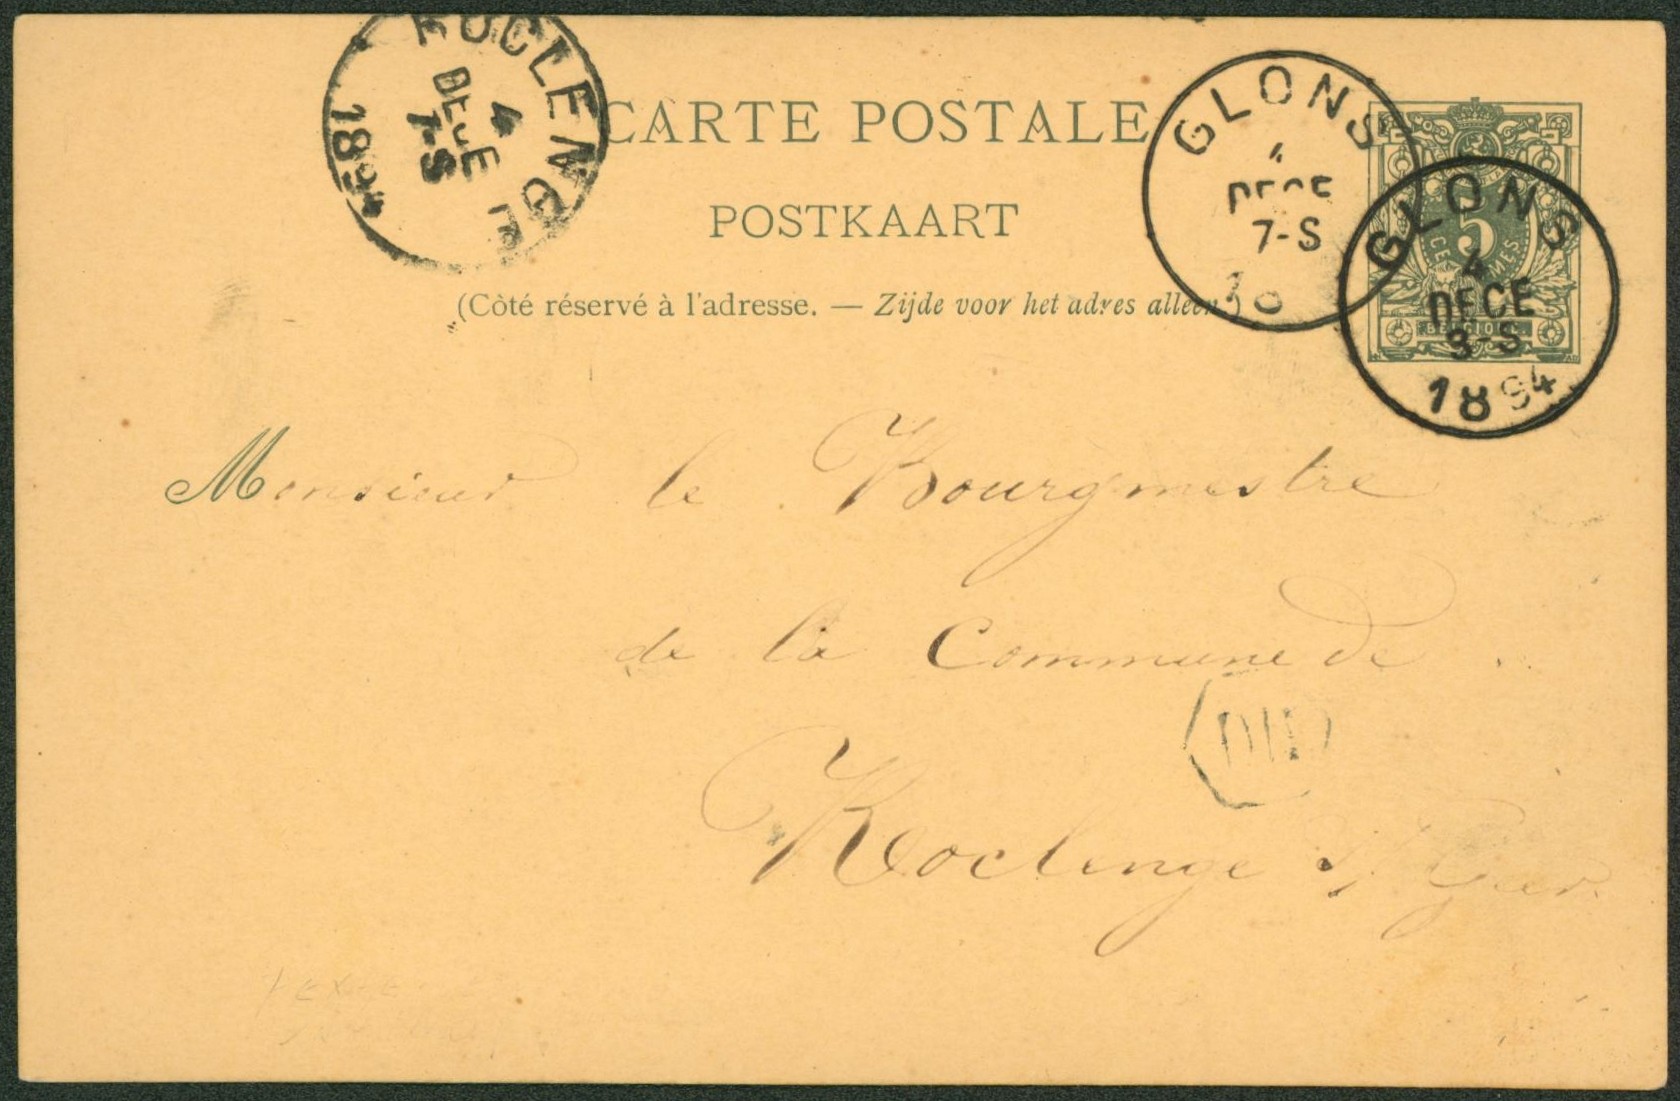 ROCLENGE
4
DECE
7-S
189
CARTE POSTALE
POSTKAART
(Côté réservé à l'adresse. — Zijde voor het adres alleen.)
GLONS
4
DECE
7-S
18
5
CENTIMES
BELGIQUE.
GLONS
4
DECE
8-S
1894
Monsieur le Bourgmestre
de la Commune de
Roclenge s/ Geer.